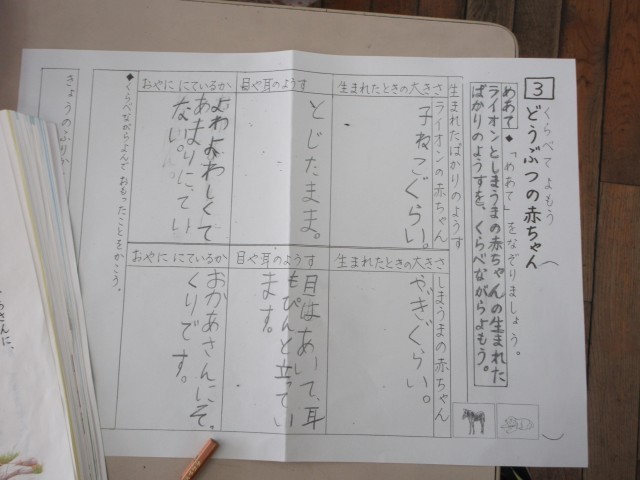 ３ くらべてよもう
どうぶつの赤ちゃん
◆「めあて」をなぞりましょう。
めあて
ライオンとしまうまの赤ちゃんの生まれた
ばかりのようすを、くらべながらよもう。
生まれたばかりのようす
ライオンの赤ちゃん
生まれたときの大きさ
子ねこぐらい。
目や耳のようす
とじたまま。
おやに にているか
よわよわしくて
あまりにてい
ない。
しまうまの赤ちゃん
生まれたときの大きさ
やぎぐらい。
目や耳のようす
目はあいて、耳
もぴんと立ってい
ます。
おやに にているか
おかあさんにそっ
くりです。
◆くらべながらよんで おもったことをかこう。
きょうのふりか
さんに、